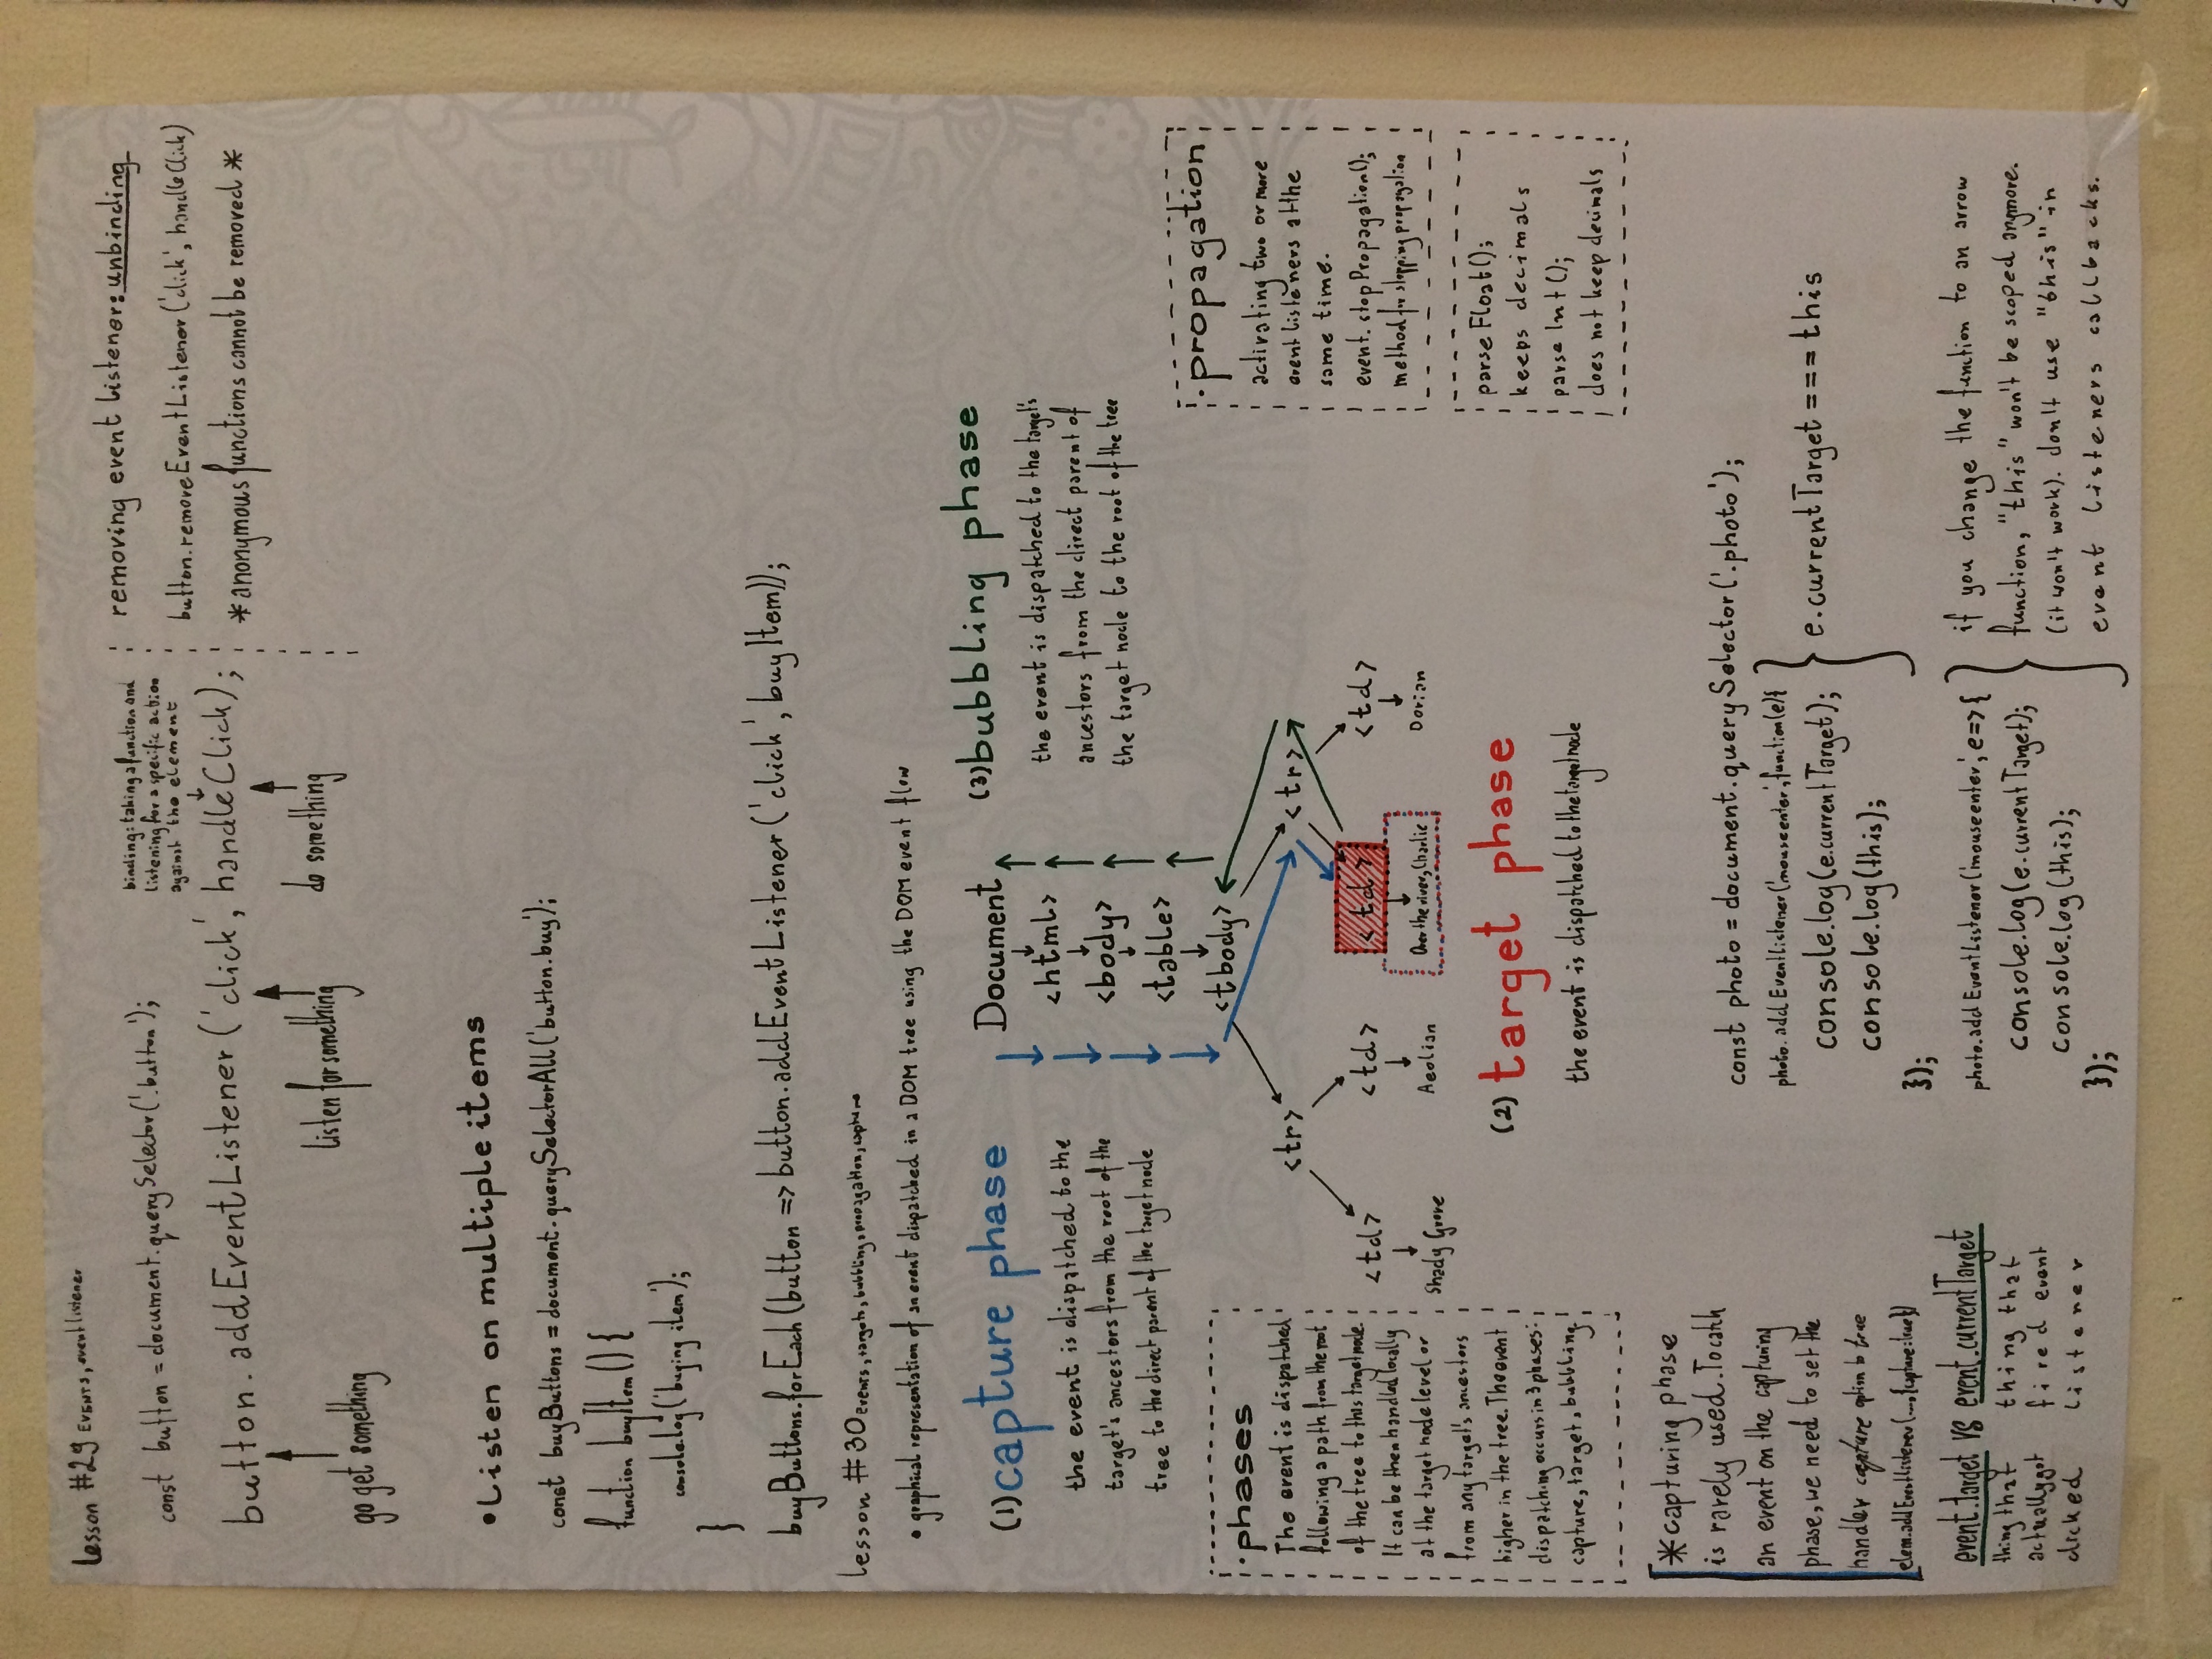 lesson #29 EVENTS, event listener
const button = document.querySelector('.button');
binding: taking a function and
listening for a specific action
against the element
button.addEventListener('click', handleClick);
go get something
listen for something
do something
removing event listener: unbinding
button.removeEventListener('click', handleClick)
*anonymous functions cannot be removed*
•Listen on multiple items
const buyButtons = document.querySelectorAll('button.buy');
function buyItem() {
console.log('buying item');
}
buyButtons.forEach(button => button.addEventListener('click', buyItem));
lesson #30 events, targets, bubbling, propagation, capture
• graphical representation of an event dispatched in a DOM tree using the DOM event flow
(1) capture phase
the event is dispatched to the
target's ancestors from the root of the
tree to the direct parent of the target node
Document
<html>
<body>
<table>
<tbody>
<tr>
<tr>
<td>
<td>
<td>
<td>
Shady Grove
Aeolian
Over the river, Charlie
Dorian
(3) bubbling phase
the event is dispatched to the target's
ancestors from the direct parent of
the target node to the root of the tree
(2) target phase
the event is dispatched to the target node
•phases
The event is dispatched
following a path from the root
of the tree to this target node.
It can be then handled locally
at the target node level or
from any target's ancestors
higher in the tree. The event
dispatching occurs in 3 phases:
capture, target, bubbling.
•propagation
activating two or more
event listeners at the
same time.
event.stopPropagation();
method for stopping propagation
parseFloat();
keeps decimals
parseInt();
does not keep decimals
*capturing phase
is rarely used. To catch
an event on the capturing
phase, we need to set the
handler capture option to true
elem.addEventListener(...,{capture:true})
event.target vs event.currentTarget
thing that
actually got
clicked
thing that
fired event
listener
const photo = document.querySelector('.photo');
photo.addEventListener('mouseenter', function(e){
console.log(e.currentTarget);
console.log(this);
});
e.currentTarget === this
photo.addEventListener('mouseenter', e=>{
console.log(e.currentTarget);
console.log(this);
});
if you change the function to an arrow
function, "this" won't be scoped anymore.
(it won't work). don't use "this" in
event listeners callbacks.